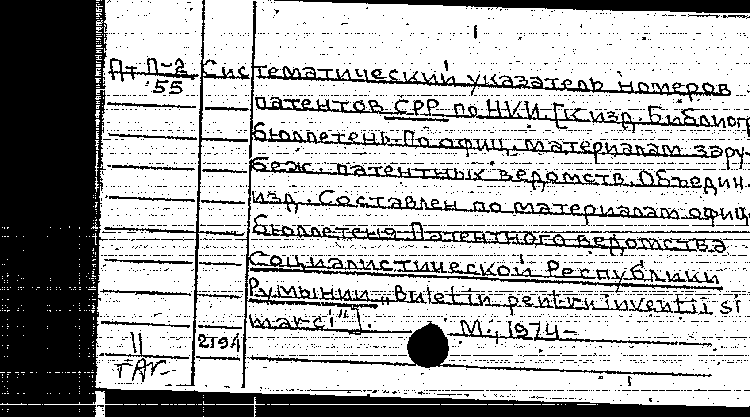 Пт П-2 Систематический указатель номеров
55
патентов СРР по НКИ. [К изд. Библиогр
бюллетень. По офиц. материалам зару-
беж. патентных ведомств. Объедин.
изд. Составлен по материалам офиц
бюллетеня Патентного ведомства
Социалистической Республики
Румынии „Buletin pentru inventii si
marci"]. М., 1974-
11 2194